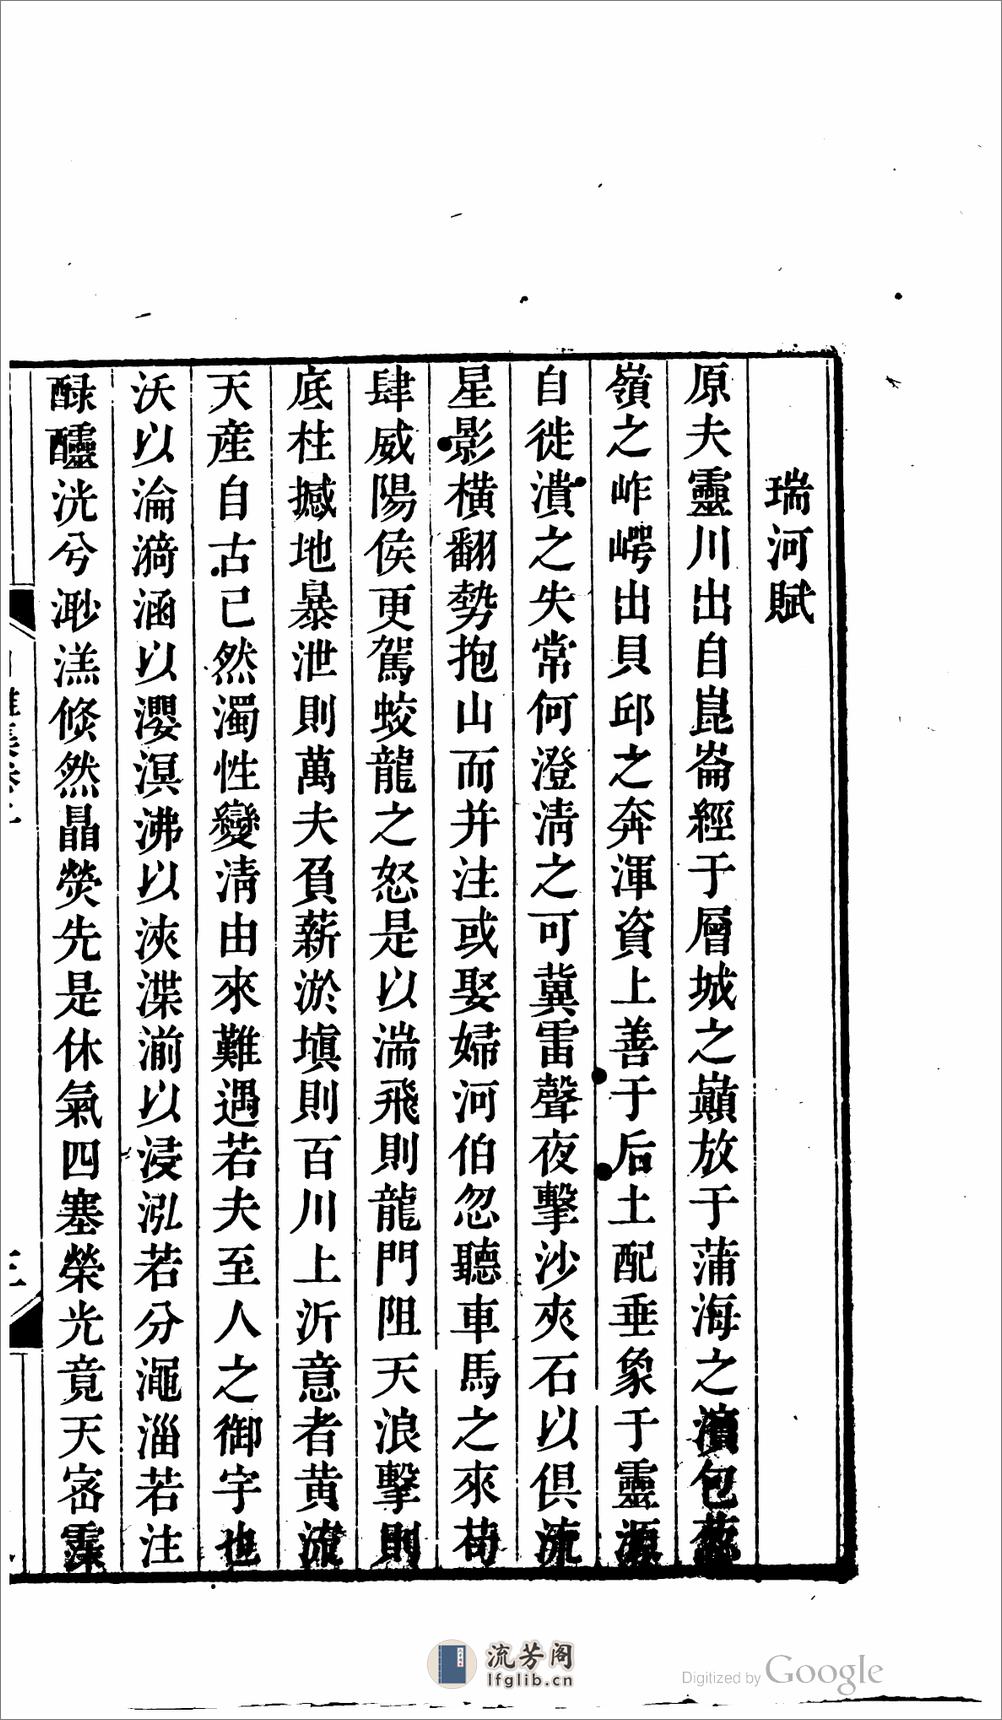 瑞河賦
原夫靈川出自崑崙經于層城之巔放于蒲海之濱包蔥
嶺之岞崿出貝邱之奔渾資上善于后土配垂象于靈源
自徙潰之失常何澄清之可冀雷聲夜擊沙夾石以俱流
星影橫翻勢抱山而并注或娶婦河伯忽聽車馬之來苟
肆威陽侯更駕蛟龍之怒是以湍飛則龍門阻天浪擊則
底柱撼地暴泄則萬夫負薪淤填則百川上泝意者黃流
天產自古已然濁性變清由來難遇若夫至人之御宇也
沃以淪漪涵以瀴溟沸以浹渫湔以浸泓若分澠淄若注
醁醽洸兮渺溔倏然晶熒先是休氣四塞榮光竟天密霂
三
流芳阁
lfglib.cn
Digitized by Google